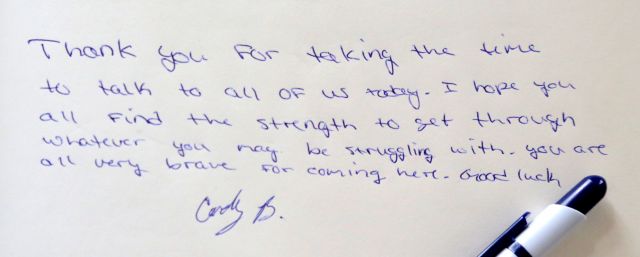 Thank you For taking the time
to talk to all OF us today. I hope you
all Find the strength to get through
whatever you may be struggling with. you are
all very brave for coming here. Good luck
B.